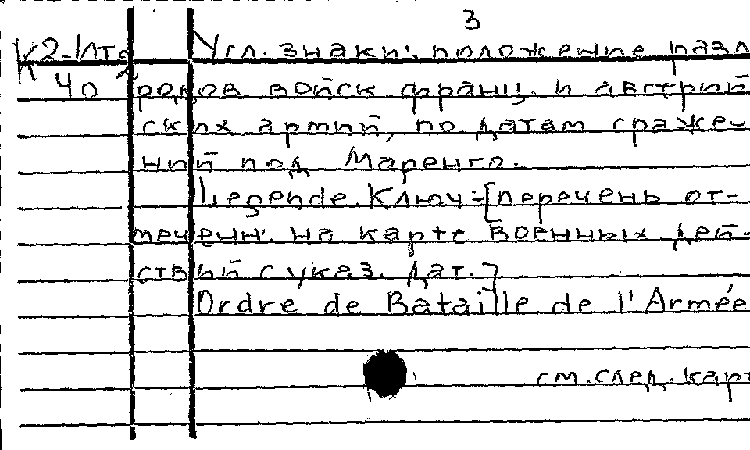 3
К2-Ита Усл. знаки: положение разл.
40 родов войск франц. и австрий
ских армий, по датам сраже-
ний под Маренго.
Legende. Ключ=[перечень от-
меченн. на карте военных дей-
ствий с указ. дат.]
Ordre de Bataille de l'Armée
см. след. карт